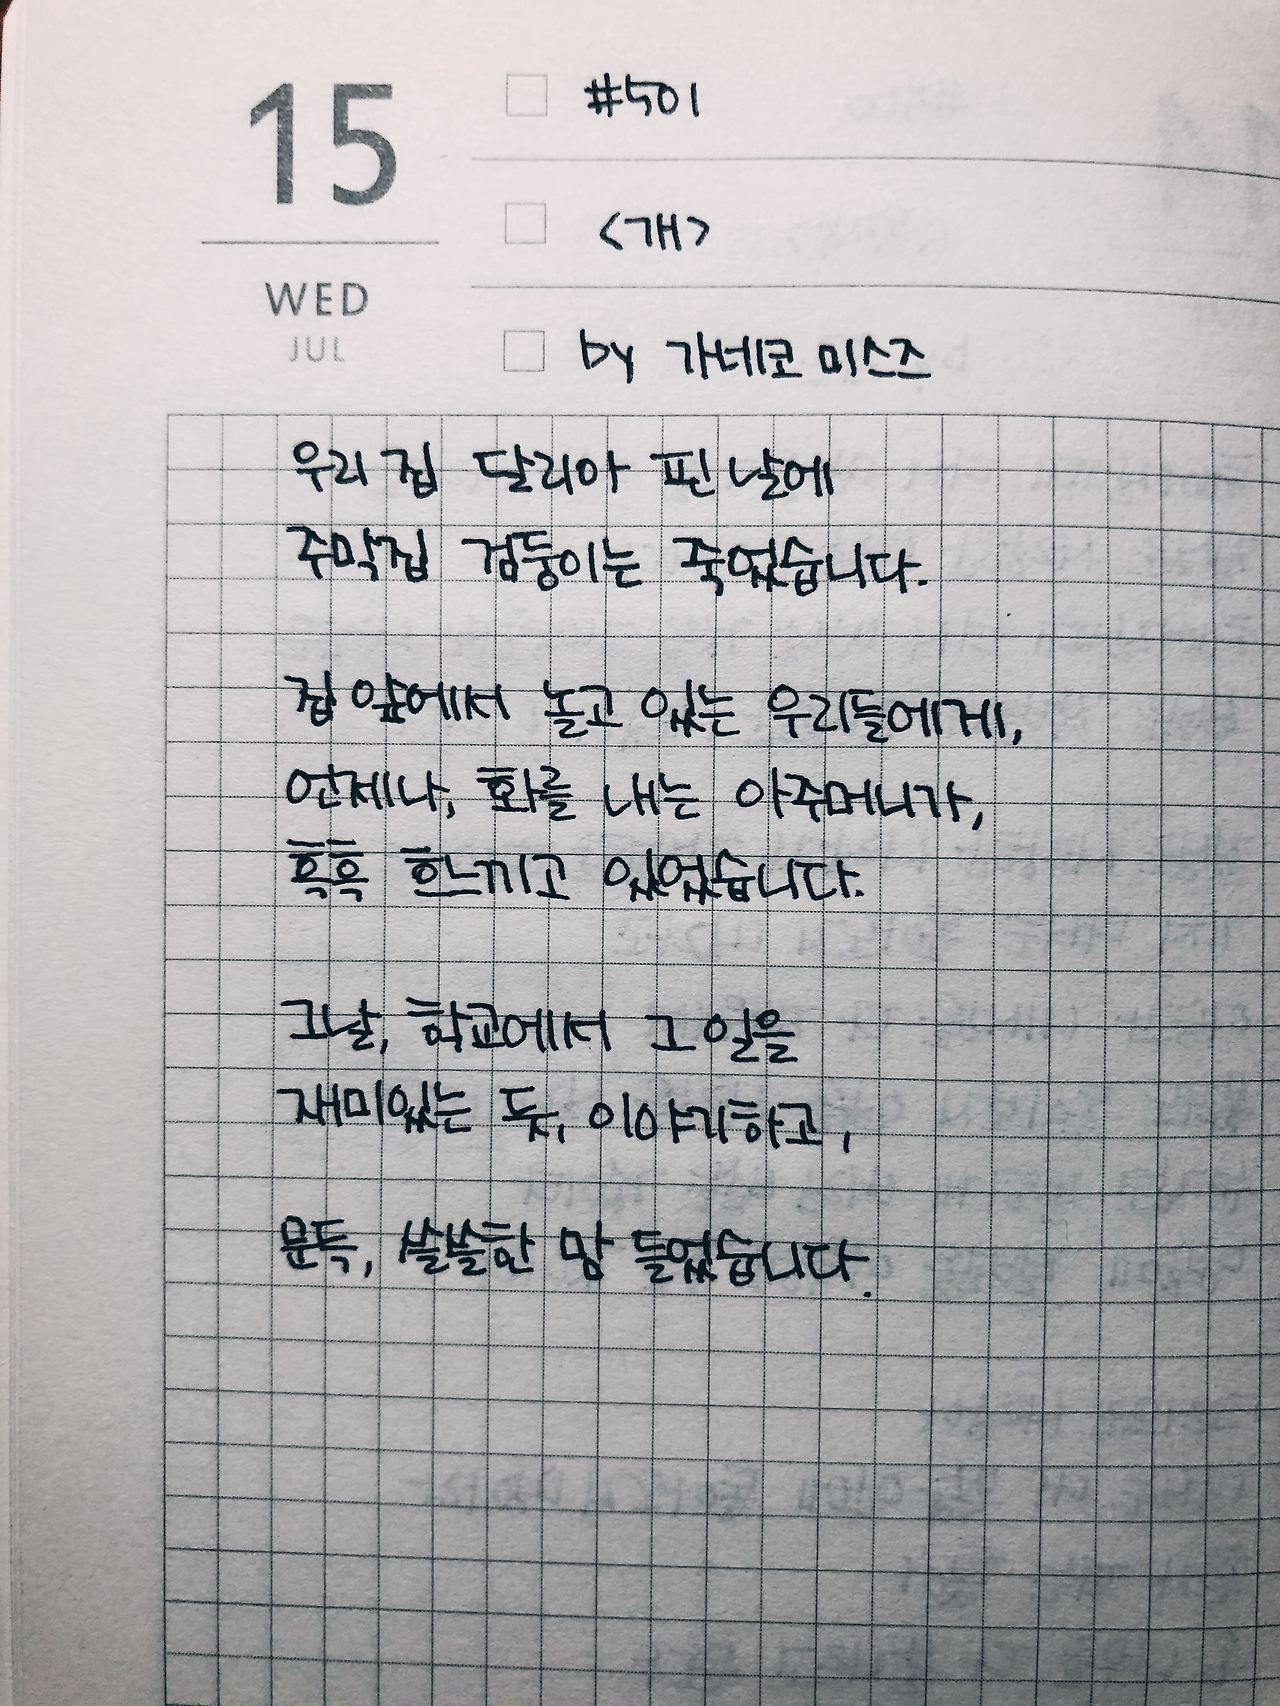 15
WED
JUL
#501
<개>
by 가네코 미스즈
우리 집 달리아 핀 날에
주막집 검둥이는 죽었습니다.
집 앞에서 놀고 있는 우리들에게,
언제나, 화를 내는 아주머니가,
흑흑 흐느끼고 있었습니다.
그날, 학교에서 그 일을
재미있는 듯, 이야기하고,
문득, 쓸쓸한 맘 들었습니다.